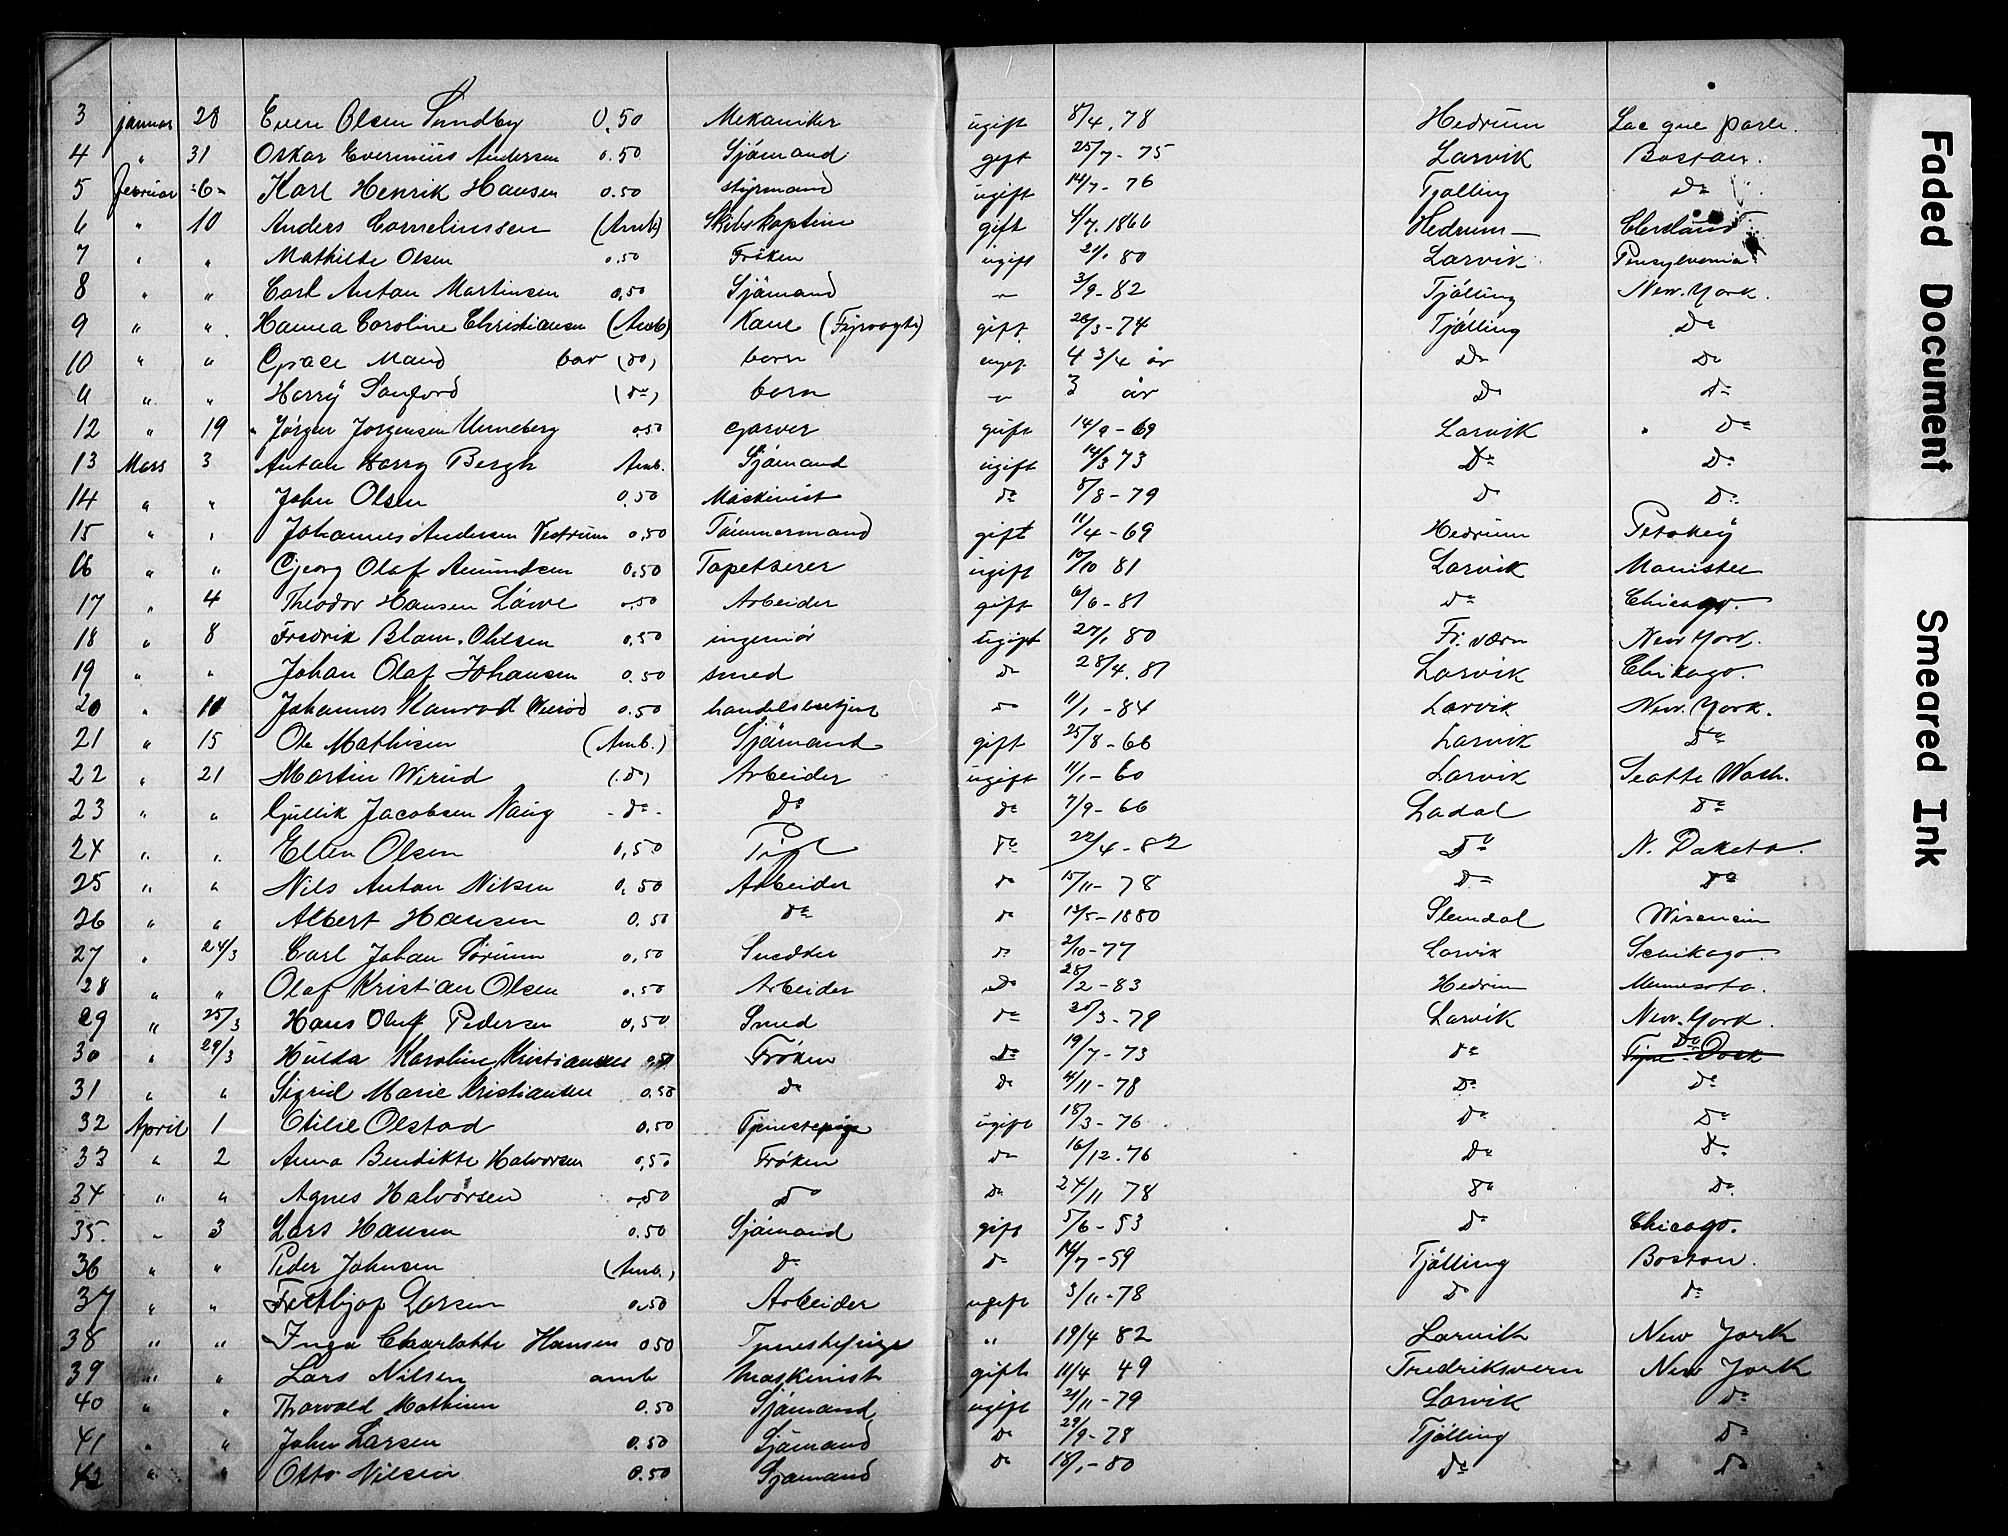 3 januar 28 Even Olsen Sundby 0,50 Mekaniker ugift 8/4.78 Hedrum Lac que parle.
4 " 31 Oskar Evernius Andersen 0.50 Sjömand gift 25/7-75 Larvik Boston.
5 februar -6- Karl Henrik Hansen 0.50 styrmand ugift 14/7-76 Tjølling do
6 " 10 Anders Cornelinssen (Amk) Skibskaptein gift 4/7.1866 Hedrum Cleveland
7 " " Mathilde Olsen 0.50 Frøken ugift 21/1 80 Larvik Pensylvenia
8 " " Carl Anton Martinsen 0,50 Sjömand " 3/9-82 Tjölling New. York.
9 " " Hanna Caroline Christiansen (Amb) Kone (Fyrvogts) gift 26/3-74 Tjölling Do
10 " " Grace Maud bar (do) born uegef. 4 3/4 år Do Do
11 " " Harry Sanford (do) born " 3 år Do do
12 " 19 " Jørgen Jørgensen Unneberg 0.50 garver gift 14/9-69 Larvik " Do
13 Mars 3 Anton Harry Bergh Amb. Sjömand ugift 14/3 73 Do Do
14 " " John Olsen 0.50 Maskinist do 8/8-79 Do Do
15 " " Johannes Andersen Vestrum 0,50 Tömmermand gift 11/4-69 Hedrum Petoskey
16 " " Georg Olaf Amundsen 0,50 Tapetserer ugift 10/10 81 Larvik Manistee
17 " 4 Theodor Hansen Löwe 0,50 Arbeider gift 6/6-81 do Chicago.
18 " 8 Fredrik Blom. Ohlsen 0,50 ingeniør ugift 27/1 80 Fr. værn New York.
19 " " Johan Olaf Johansen 0.50 smed do 28/4.81 Larvik Chikago.
20 " 10 Johannes Konrad Vierød 0.50 handelsbetjent do 11/1-84 Larvik New. York.
21 " 15 Ole Mathisen (Amb.) Sjömand gift 25/8-66 Larvik Do
22 " 21 Martin Wirud (.do) Arbeider ugift 11/1-60 Larvik Seatte Wash.
23 " " Gullik Jacobsen Naug -do- Do do 7/9-66 Ladal Do
24 " " Ellen Olsen 0,50 Pige do 22/4-82 Do N. Dakota.
25 " " Nils Anton Nilsen 0,50 Arbeider do 15/11-78 Do Do
26 " " Albert Hansen 0.50 do do 13/5-1880 Slemdal Wisconsin
27 " 24/3 Carl Johan Sørum 0,50 Snedker do 2/10-77 Larvik Schikago.
28 " " Olaf Kristian Olsen 0,50 Arbeider Do 28/2-83 Hedrum Mennesota.
29 " 25/3 Hans Oluf Pedersen 0,50 Smed do 30/3-79 Larvik New-York.
30 " 29/3 Hulda Karoline Kristiansen 0,50 Frøken Do 19/7-73 do Do
31 " " Sigrid Marie Kristiansen 0.50 do Do 4/11-78 Do Do
32 April 1 Otilie Olstad 0,50 Tjenestepige ugift 18/3-76 Do Do
33 " 2 Anna Bendikte Halvorsen 0,50 Frøken do 16/12.76 Do Do
34 " " Agnes Halvorsen 0,50 do Do 24/11 78 do Do
35. " 3 Lars Hansen 0.50 Sjömand gift 5/6-53 Do Chicago.
36 " " Peder Johnsen (Amb.) Do do 14/7-59 Tjölling Boston.
37 " " Fritthjof Larsen 0.50 Arbeider ugift 3/11-78 Do do
38 " " Inga Charlotte Hansen 0.50 Tjenestepige " 19/4 82 Larvik New York
39 " " Lars Nilsen amb Maskinist gift 11/4 49 Fredriksvern New York
40 " " Thorvald Mathisen 0.50 Sjömand ugift 21/11-79 Larvik Do
41 " " John Larsen 0.50 Sjömand Do 29/9-78 Tjölling Do
42 " " Otto Nilsen 0.50 Sjömand do 18/1-80 Do Do
Faded Document
Smeared Ink